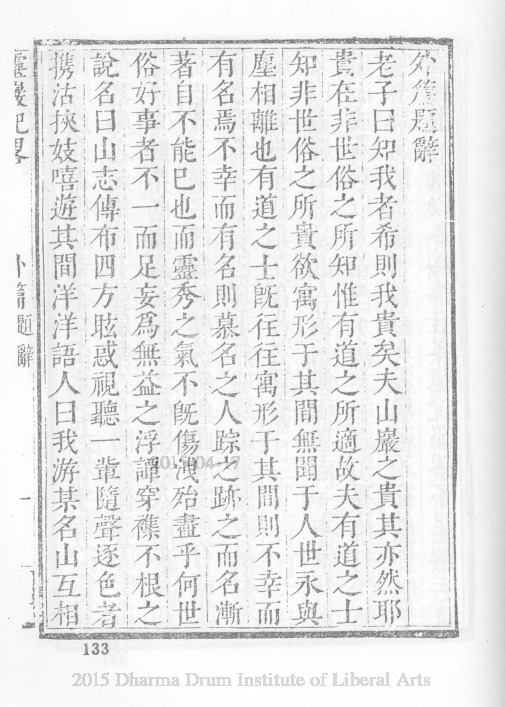 外篇題辭
老子曰知我者希則我貴矣夫山巖之貴其亦然耶
貴在非世俗之所知惟有道之所適故夫有道之士
知非世俗之所貴欲寓形于其間無關于人世永與
塵相離也有道之士旣往往寓形于其間則不幸而
有名焉不幸而有名則慕名之人踪之跡之而名漸
著自不能已也而靈秀之氣不旣傷洩殆盡乎何世
俗好事者不一而足妄爲無益之浮譚穿襍不根之
說名曰山志傳布四方眩惑視聽一輩隨聲逐色者
携沽挾妓嘻遊其間洋洋語人曰我游某名山互相
靈巖記畧
外篇題辭
一
2015-04-17
133
2015 Dharma Drum Institute of Liberal Arts